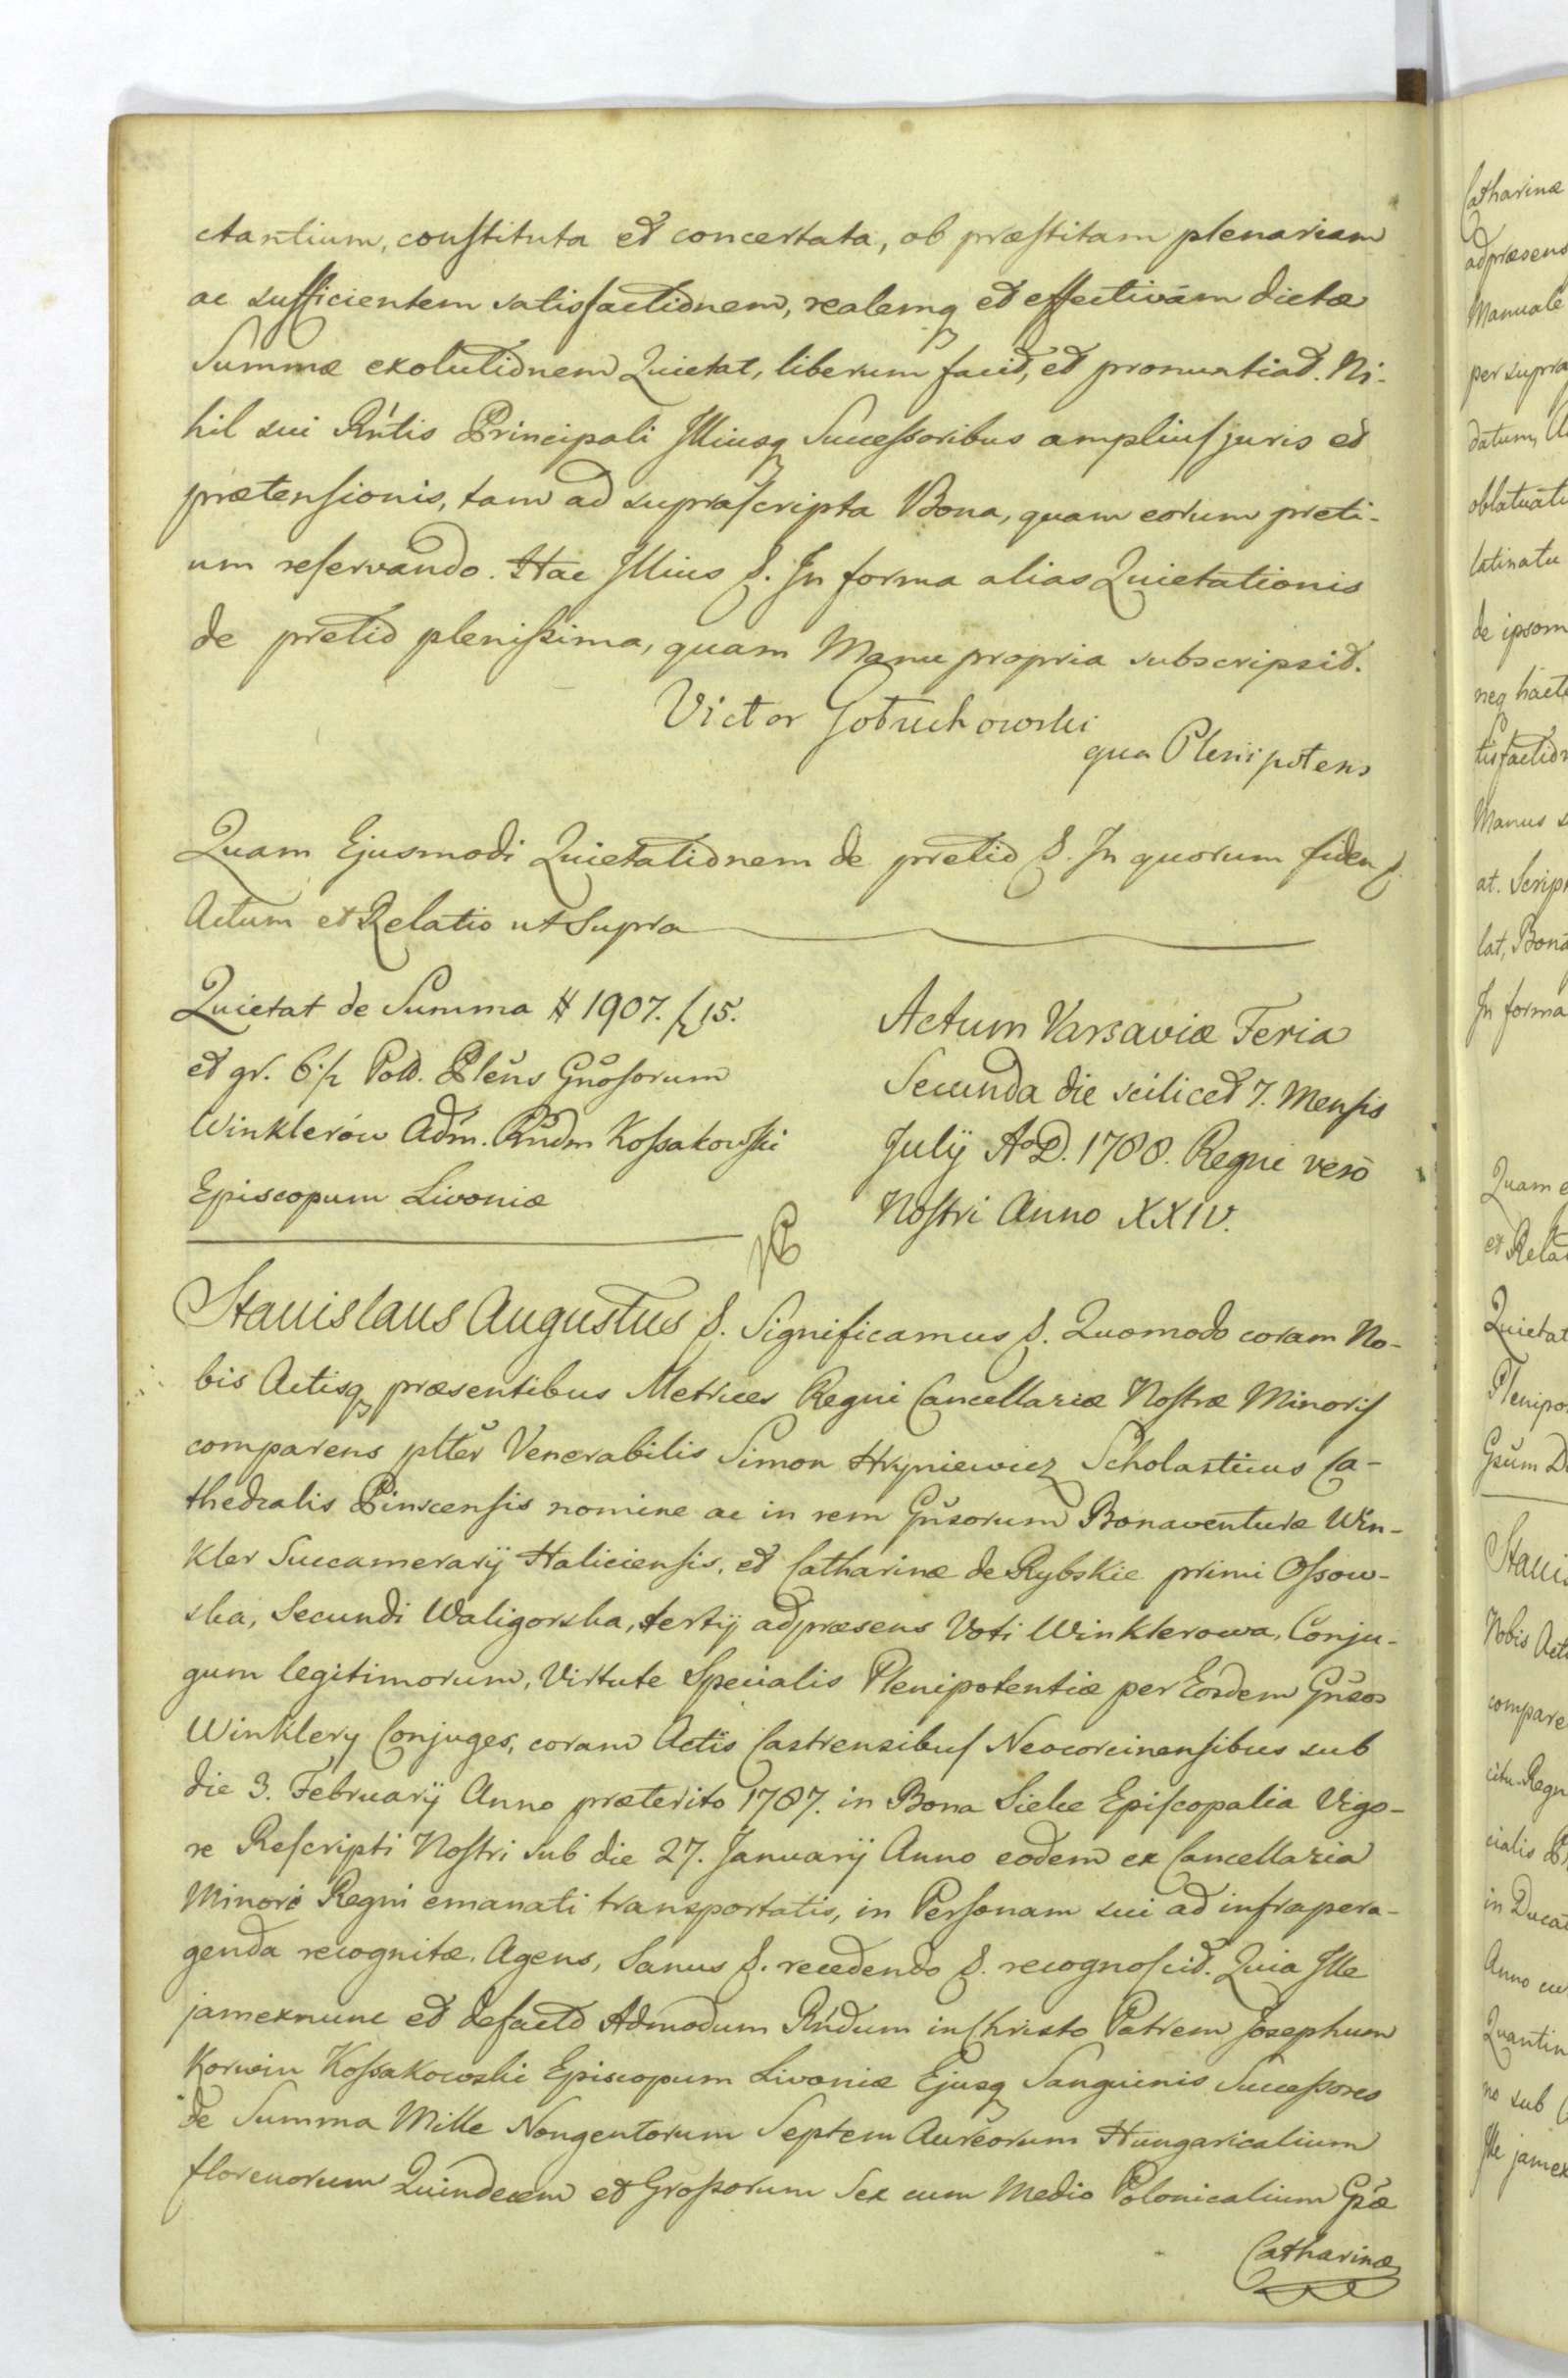 ctantium, constituta et concertata, ob præstitam plenariam
ac sufficientem satisfactionem, realemq et effectivam dictæ
Summæ exolutionem Quietat, liberum facit, et pronuntiat. Ni-
hil sui Rntis Principali Illiusq Successoribus amplius juris et
prætensionis, tam ad suprascripta Bona, quam eorum preti-
um reservando. Hac Illius &. In forma alias Quietationis
de pretio plenissima, quam Manu propria subscripsit.
Victor Gołuchowski
qua Plenipotens
Quam Ejusmodi Quietationem de pretio &. In quorum fidem &.
Actum et Relatio ut Supra
Quietat de Summa # 1907. f 15.
et gr. 6 ½ Pold. Plens Gnosorum
Winklerow Adm. Rndm Kossakowski
Episcopum Livoniæ
Actum Varsaviæ Feria
Secunda die scilicet 7. Mensis
Julij A. D. 1788. Regni vero
Nostri Anno XXIV.
Stanislaus Augustus &. Significamus &. Quomodo coram No-
bis Actisq præsentibus Metrices Regni Cancellariæ Nostræ Minoris
comparens pltter Venerabilis Simon Hryniewicz Scholasticus Ca-
thedralis Pinscensis nomine ac in rem Gnsorum Bonaventuræ Win-
kler Succamerarij Haliciensis, et Catharinæ de Rybskie primi Ossow-
ska, Secundi Waligorska, tertij adpræsens Voti Winklerowa, Conju-
gum legitimorum, Virtute Specialis Plenipotentiæ per Eosdem Gnsos
Winklery Conjuges, coram Actis Castrensibus Neocorcinensibus sub
die 3. Februarij Anno præterito 1787. in Bona Sielce Episcopalia Vigo-
re Rescripti Nostri sub die 27. Januarij Anno eodem ex Cancellaria
Minori Regni emanati transportatis, in Personam sui ad infrapera-
genda recognitæ. Agens, Sanus &. recedendo &. recognoscit. Quia Ille
jamexnunc et defacto Admodum Rndum in Christo Patrem Josephum
Korwin Kossakowski Episcopum Livoniæ Ejusq Sanguinis Successores
de Summa Mille Nongentorum Septem Aureorum Hungaricalium
florenorum Quindecem et Grossorum Sex cum Medio Polonicalium Gsæ
Catharinæ
Catharinæ
adpræsens
Manuale
per supra
datum,
latinatu
de ipsom
neq hact
Manus
at. Script
lat, Bona
In forma
Quam e
et Relat
Quietat
Plenipo
Gsum D
Stanis
Nobis Act
compare
citu Regn
cialis
in Ducat
Anno
Quantin
no sub
Ille jamex